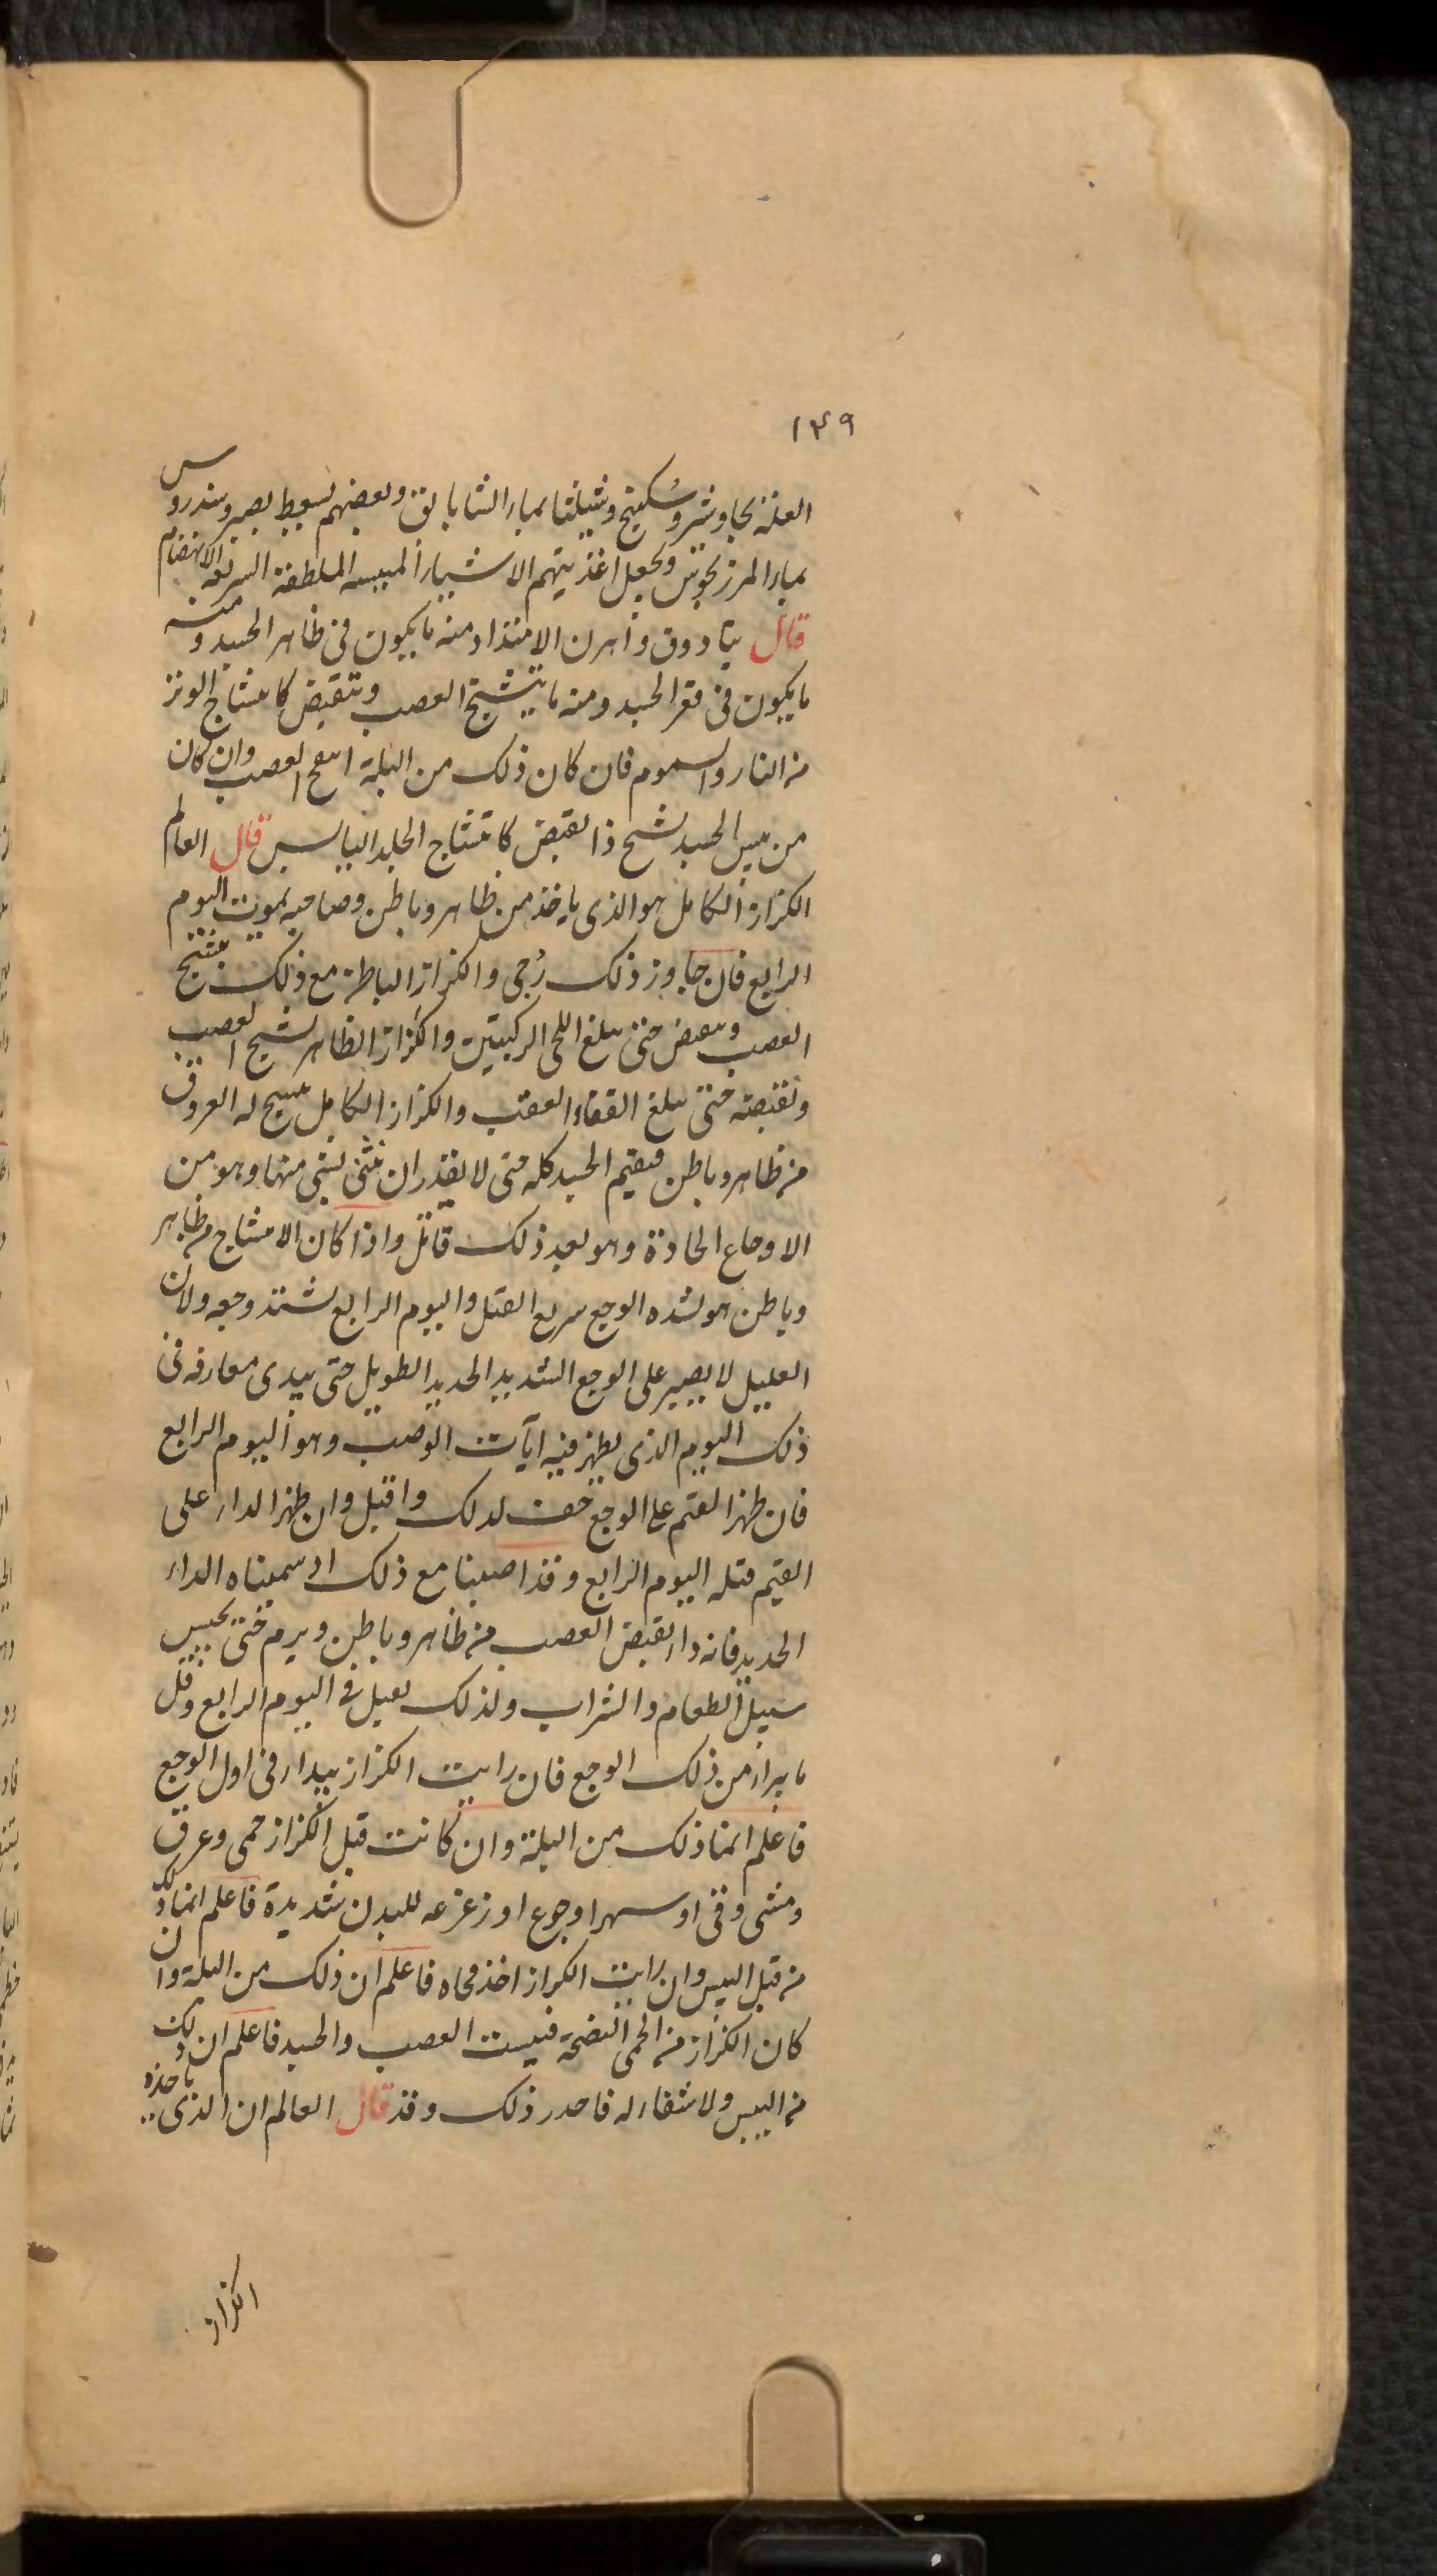 ١٤٩
العلة بجاوشير وسكبينج وشيلثا بماء الشابابق وبعضهم يسعط بصبر وسندروس
بماء المرزنجوش ويجعل اغذيتهم الاشياء الميبسه الملطفة السريعة الانهضام
قال تياذوق واهرن الامتداد منه ما يكون فى ظاهر الجسد ومنه
ما يكون فى قعر الجسد ومنه ما يتشنج العصب ويتقبض كانشناج الوتر
من النار والسموم فان كان ذلك من البلة انتفخ العصب وان كان
من يبس الجسد تشنج ذا تقبض كانشناج الجلد اليابس قال العالم
الكزاز الكامل هو الذى ياخذ من ظاهر وباطن وصاحبه يموت اليوم
الرابع فان جاوز ذلك رُجى والكزاز الباطن مع ذلك يتشنج
العصب وينقبض حتى يبلغ اللحى الركبتين والكزاز الظاهر تشنج العصب
وتقبضه حتى يبلغ القفاء العقب والكزاز الكامل تشنج له العروق
من ظاهر وباطن فيقيم الجسد كله حتى لا يقدر ان ينثنى لشى منها وهو من
الاوجاع الحادة وهو بعد ذلك قاتل واذا كان الانشناج من ظاهر
وباطن هو لشده الوجع سريع القتل واليوم الرابع يشتد وجعه ولان
العليل لا يصبر على الوجع الشديد الحديد الطويل حتى يبدى معارفه فى
ذلك اليوم الذى يظهر فيه ايآت الوصب وهو اليوم الرابع
فان ظهر القيم على الوجع خف لذلك واقبل وان ظهر الداء على
القيم قتله اليوم الرابع وقد اصبنا مع ذلك اذ سميناه الداء
الحديد فانه داء تقبض العصب من ظاهر وباطن ويرم حتى يحبس
سبيل الطعام والشراب ولذلك يقتل فى اليوم الرابع وقل
ما يبرا من ذلك الوجع فان رايت الكزاز يبدا فى اول الوجع
فاعلم انما ذلك من البلة وان كانت قبل الكزاز حمى وعرق
ومشى وقى او سهر او جوع او زعزعه للبدن شديدة فاعلم انما ذلك
من قبل اليبس وان رايت الكزاز اخذ فجاه فاعلم ان ذلك من البلة وان
كان الكزاز من الحمى النضجة فيبست العصب والجسد فاعلم ان ذلك
من اليبس ولا شفاء له فاحذر ذلك وقد قال العالم ان الذى ياخذه
الكزاز